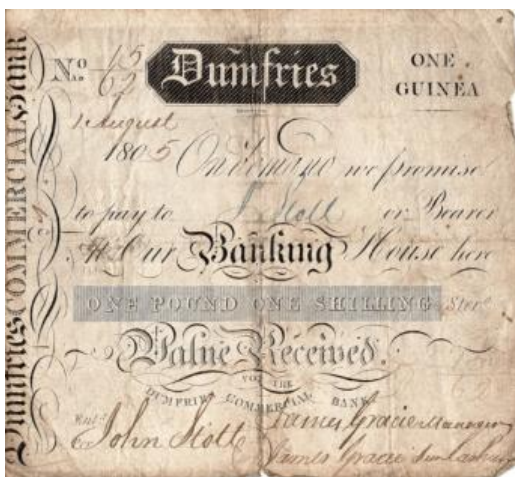 Dumfries COMMERCIAL Bank
No 15/62
Dumfries
ONE
GUINEA
1 August
1805 On demand we promise
to pay to J. Stott or Bearer
At Our Banking House here
ONE POUND ONE SHILLING Ster.
Value Received.
FOR THE
DUMFRIES COMMERCIAL BANK
Entd
John Stott
James Gracie Manager
James Gracie